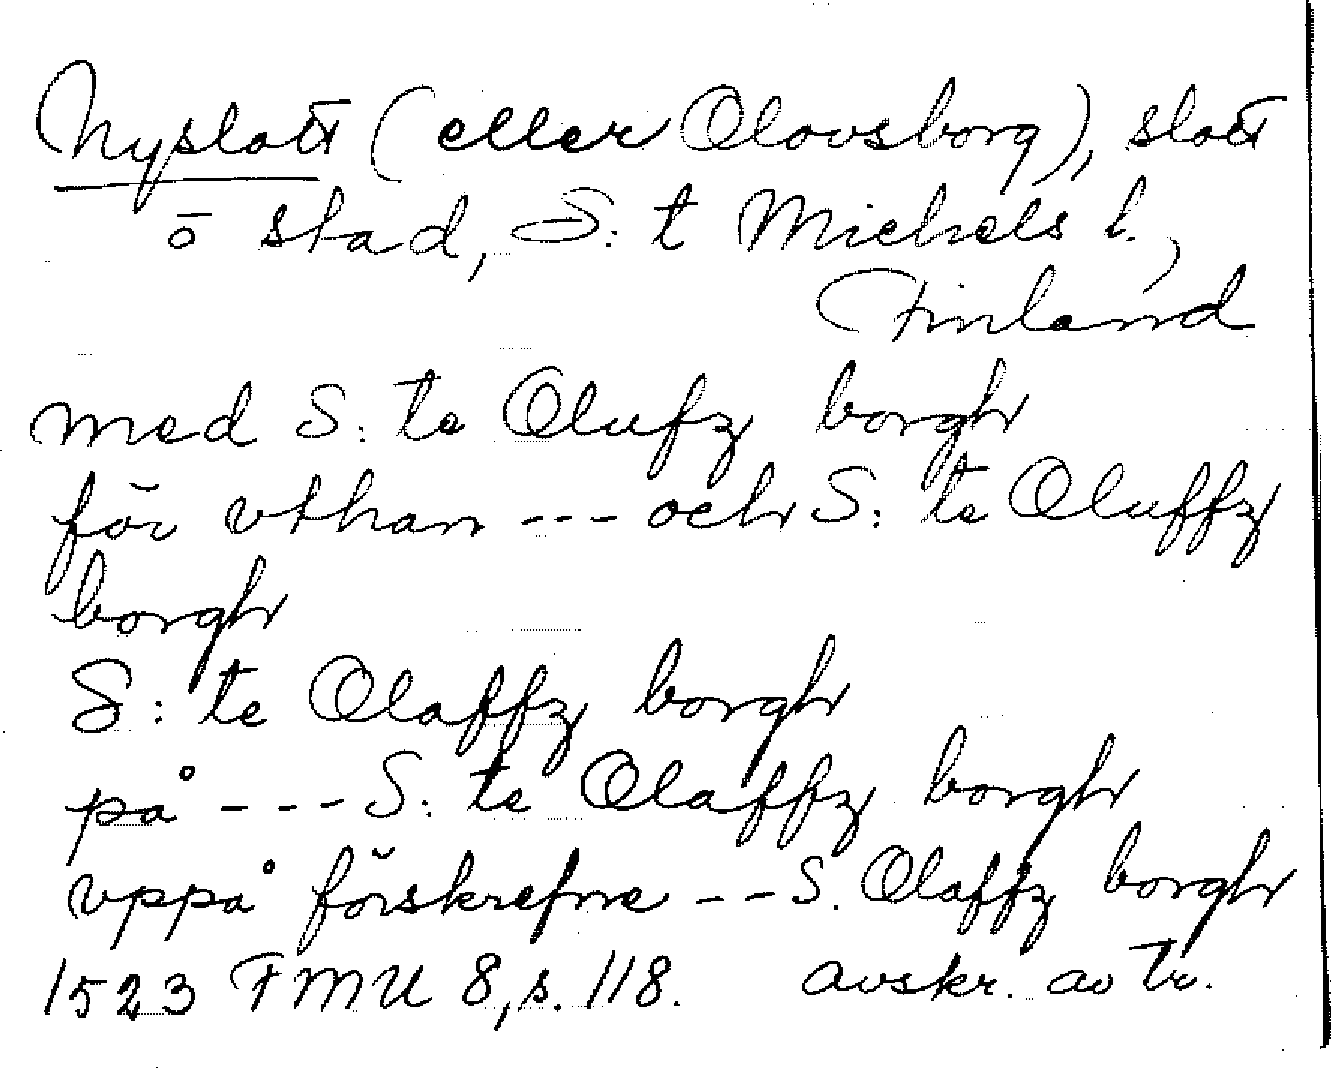 Nyslott (eller Olovsborg), slott
o stad, S:t Michels l.,
Finland
med S:te Olufz borgh
för vthan --- och S:te Oluffz
borgh
S:te Olaffz borgh
på --- S:te Olaffz borgh
vppå förskrefne -- S. Olaffz borgh
1523 FMU 8, s. 118. avskr. av tr.